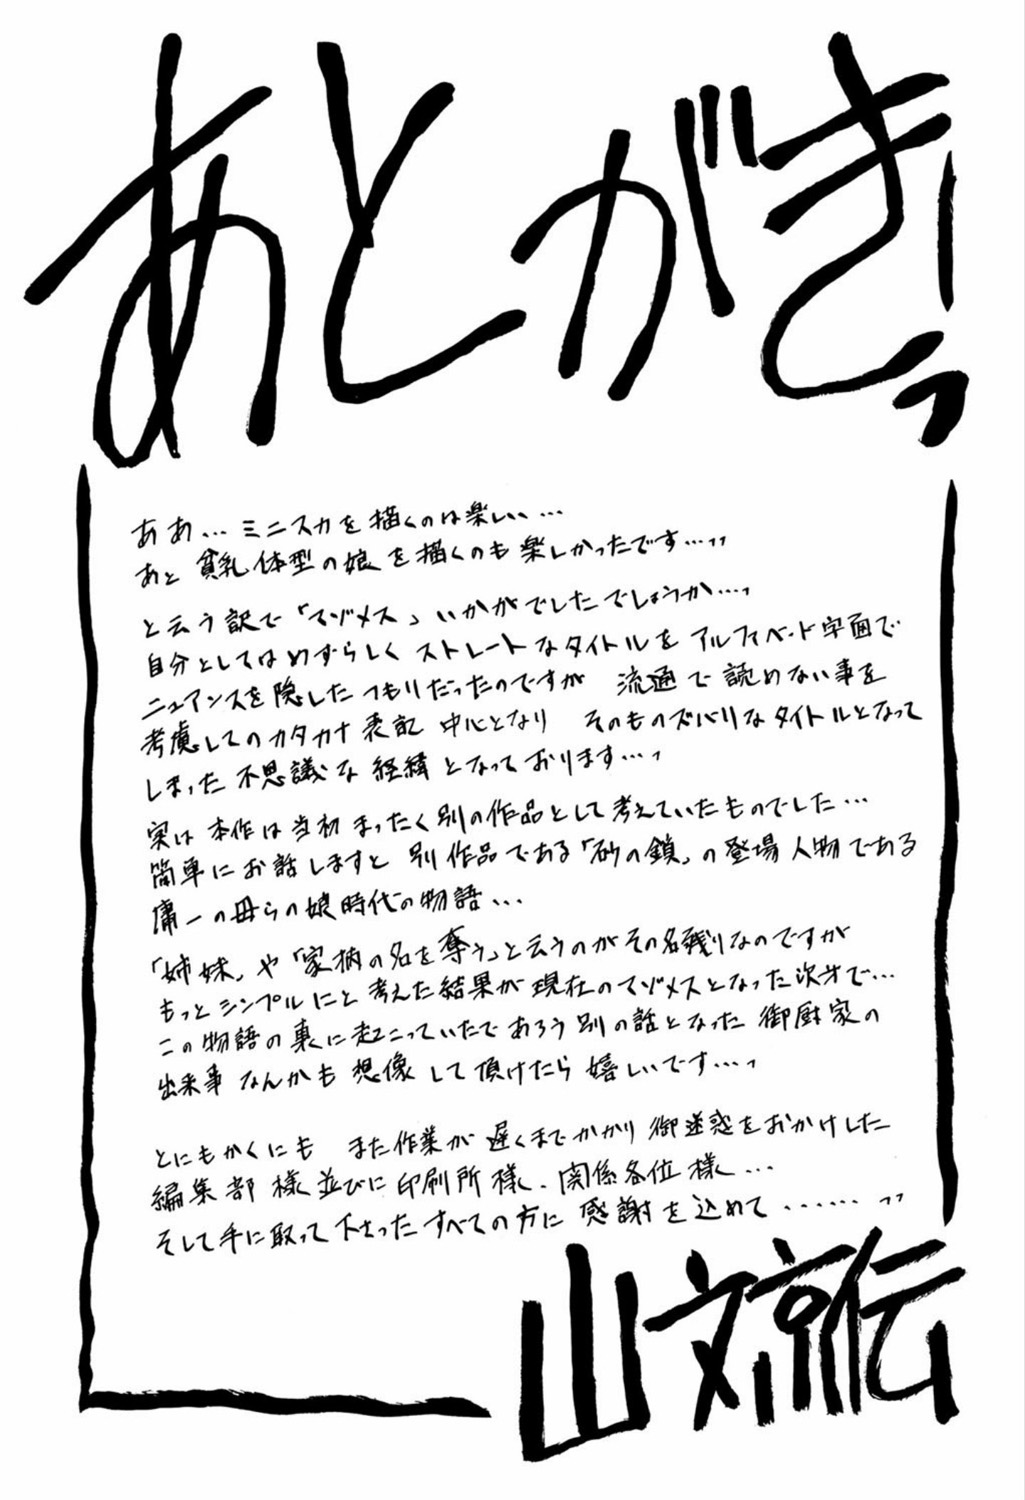 あとがきっ
ああ…ミニスカを描くのは楽しい…
あと 貧乳体型の娘を描くのも楽しかったです…っっ
と云う訳で「マゾメス」いかがでしたでしょうか…っ
自分としてはめずらしく ストレートなタイトルを アルファベット字面で
ニュアンスを隠したつもりだったのですが 流通で読めない事を
考慮してのカタカナ表記 中心となり そのものズバリなタイトルとなって
しまった不思議な経緯となっております…っ
実は本作は当初まったく別の作品として考えていたものでした…
簡単にお話しますと 別作品である「砂の鎖」の登場人物である
庸一の母らの娘時代の物語…
「姉妹」や「家柄の名を奪う」と云うのがその名残りなのですが
もっとシンプルにと考えた結果が現在のマゾメスとなった次才で…
この物語の裏に起こっていたであろう別の話となった御厨家の
出来事なんかも想像して頂けたら嬉しいです…っ
とにもかくにも また作業が遅くまでかかり御迷惑をおかけした
編集部様並びに印刷所様、関係各位様…
そして手に取って下さったすべての方に感謝を込めて……っっ
山文京伝